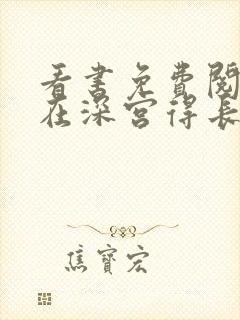 看書免費閱
在深宮得長
焦寶宏